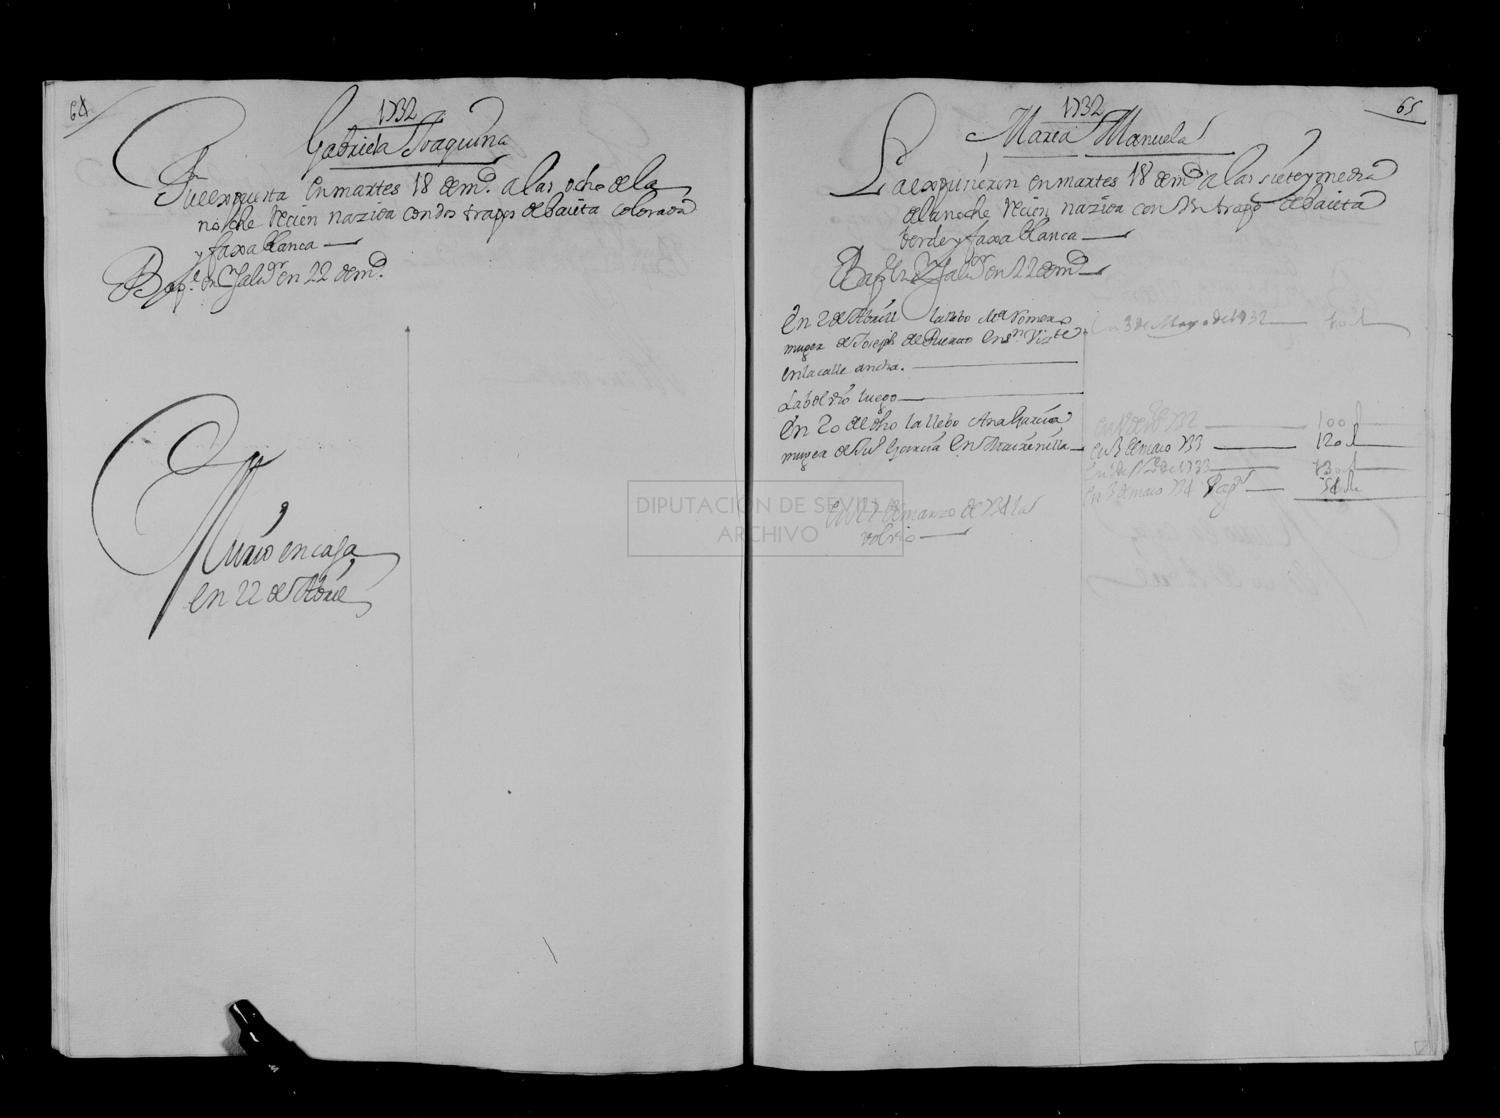 64
1732
Gabriela Joaquina
Fue expuesta en martes 18 de m.o a las ocho de la
noche recien nazida con dos trapos de baieta colorada
y faxa blanca
Bap.e en S.n Salu.or en 22 de m.o
Murio en casa
en 22 de Abril
65
1732
Maria Manuela
La expusieron en martes 18 de m.o a las siete y media
de la noche recien nazida con un trapo de baieta
berde y faxa blanca
Bap. en Salu.or en 22 de m.o
En 2 de Abril la llebo Romero
muger de Joseph de en S.n Viz.te
en la calle ancha.
La bolvio luego
En 20 de dho la llebo Ana Garcia
muger de Ju.o Garcia en Mairenilla
de marzo de 1734 la
volvio
En 3 de Mayo de 1732
732 100
en 3 de maio 733 120
de 1733 130
en 3 de maio 734
DIPUTACIÓN DE SEVILLA
ARCHIVO